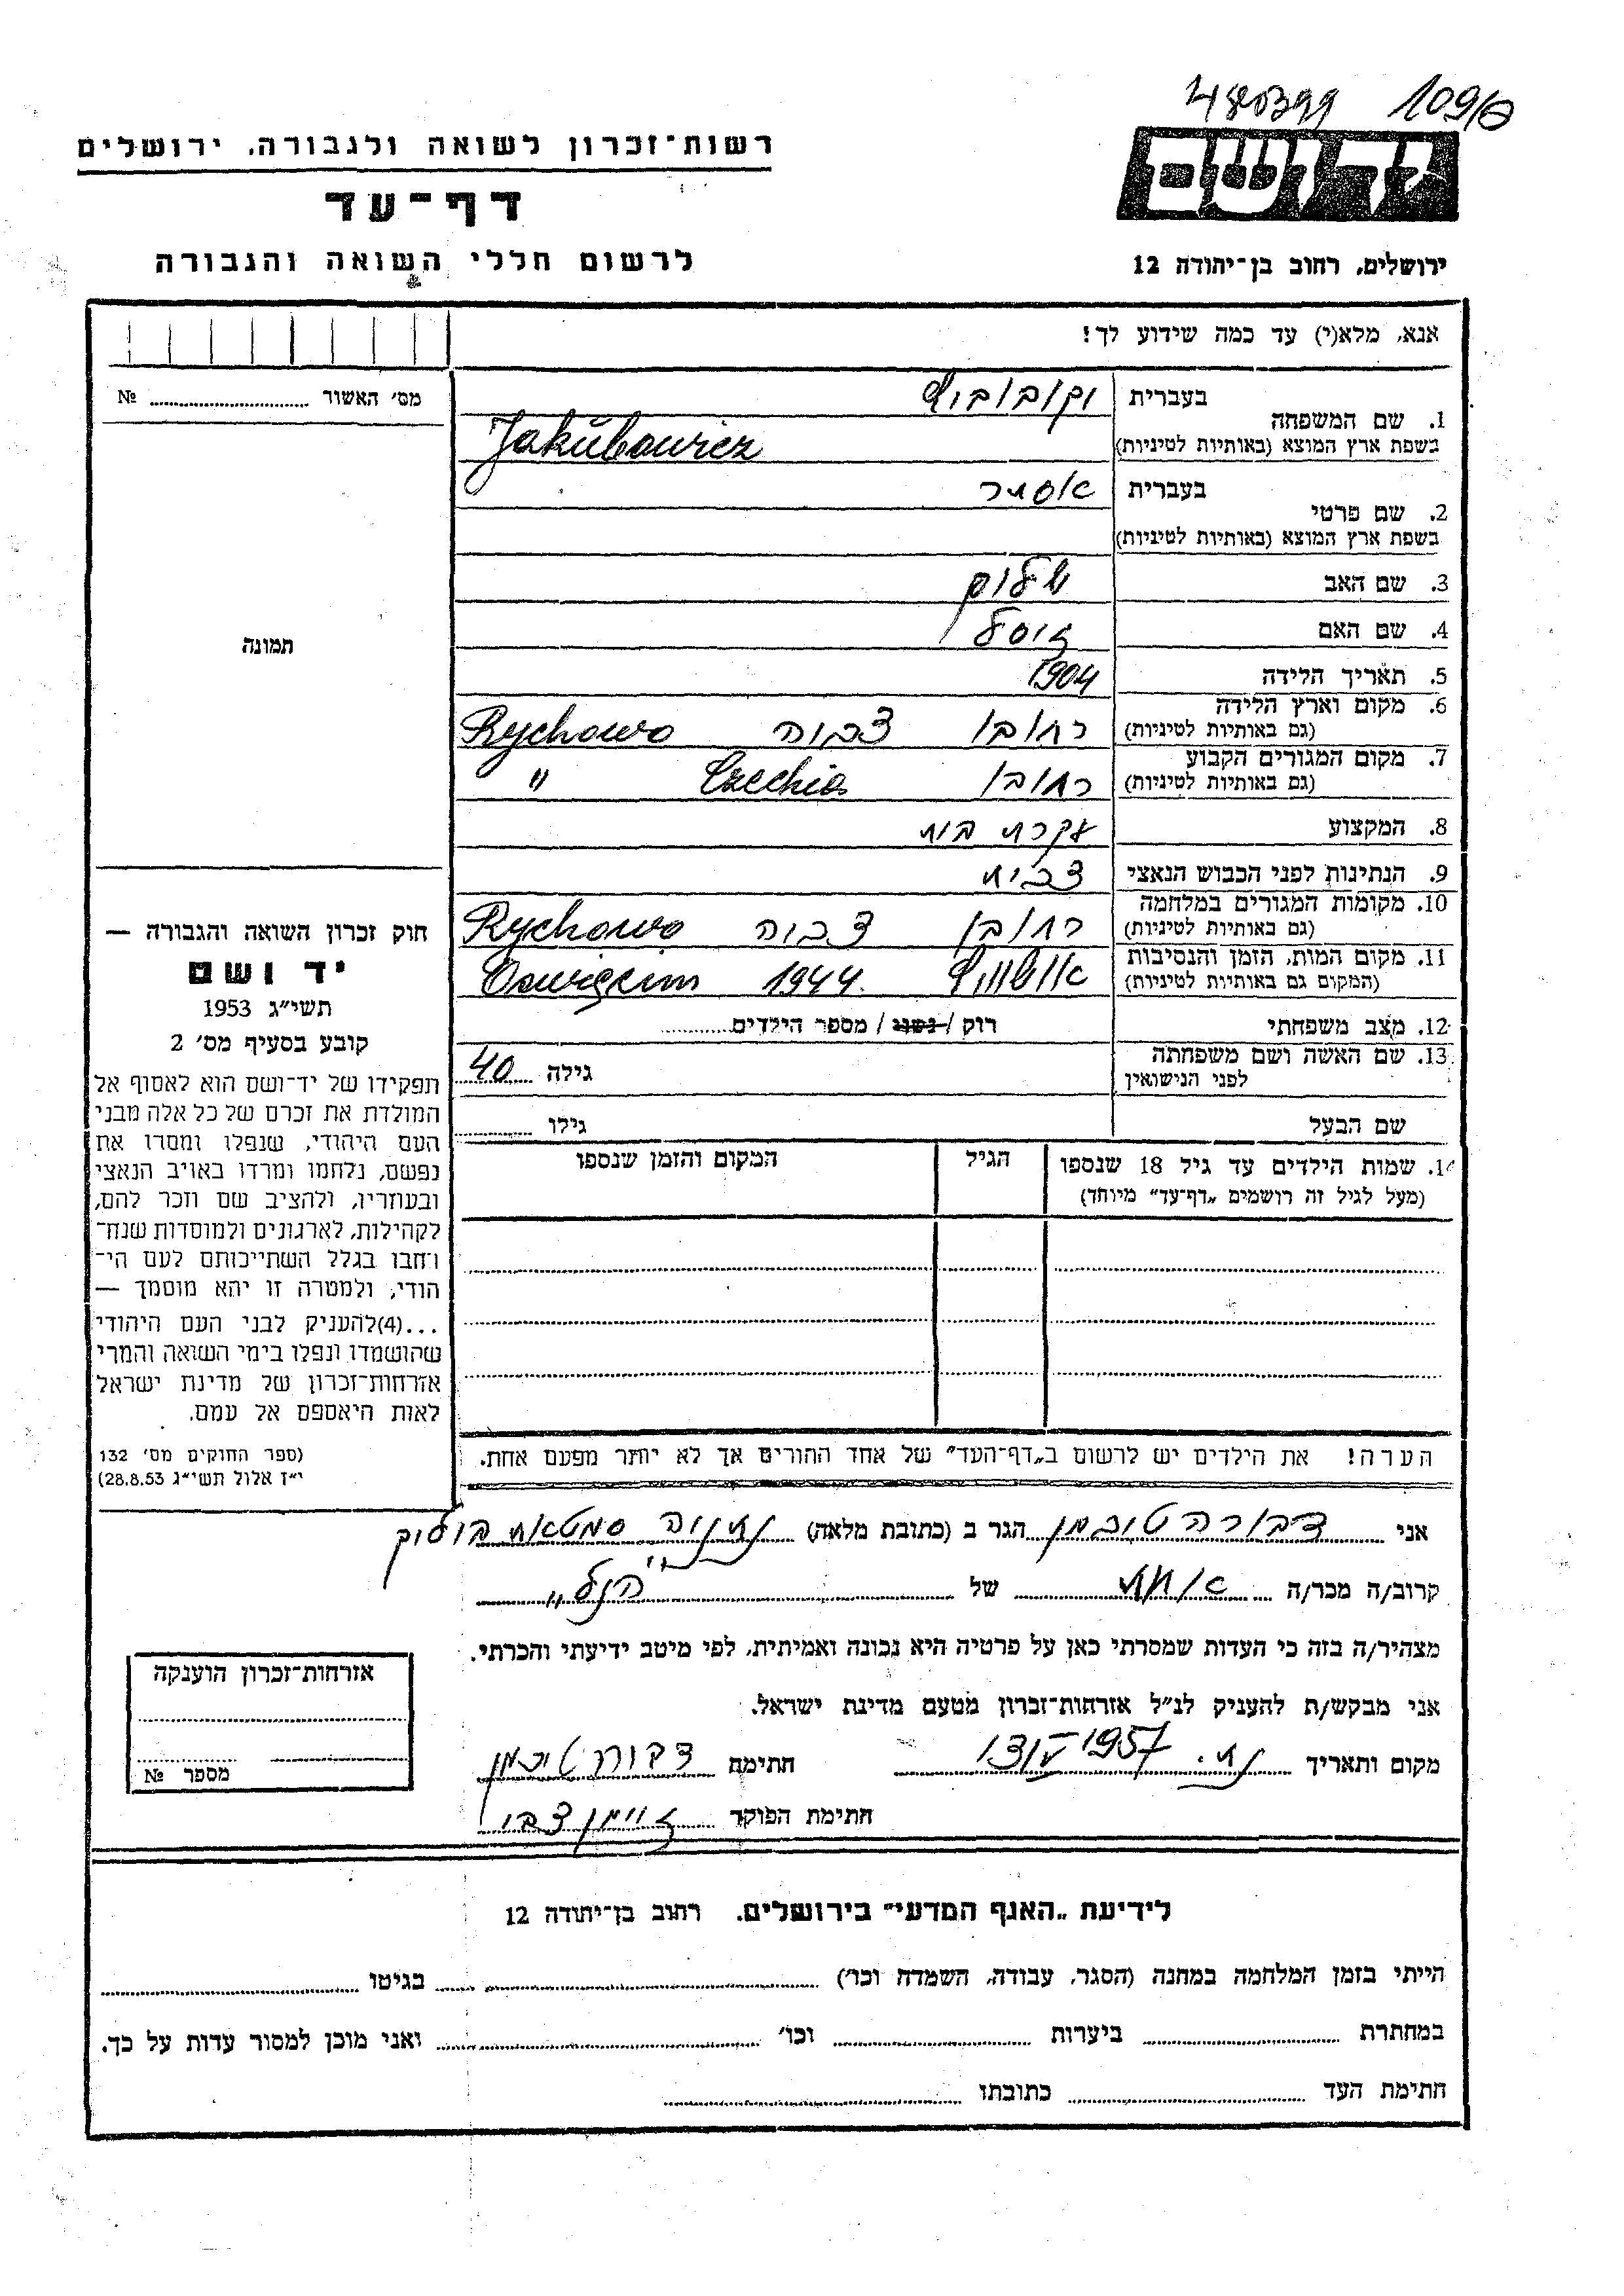 480399 109/8
רשות־זכרון לשואה ולגבורה, ירושלים
יד ושם
דף־עד
לרשום חללי השואה והגבורה
ירושלים, רחוב בן־יהודה 12
אנא, מלא(י) עד כמה שידוע לך!
מס׳ האשור № ........
1. שם המשפחה בעברית יקובוביץ
בשפת ארץ המוצא (באותיות לטיניות) Jakubowicz
2. שם פרטי בעברית אסתר
בשפת ארץ המוצא (באותיות לטיניות)
3. שם האב שלום
4. שם האם
5. תאריך הלידה 1904
6. מקום וארץ הלידה (גם באותיות לטיניות) רחובו צכיה Rychowo
7. מקום המגורים הקבוע (גם באותיות לטיניות) רחובו Czechia "
8. המקצוע עקרת בית
9. הנתינות לפני הכבוש הנאצי צכית
10. מקומות המגורים במלחמה (גם באותיות לטיניות) רחובו צכיה Rychowo
11. מקום המות, הזמן והנסיבות (המקום גם באותיות לטיניות) אושוויץ 1944. Oswięcim
12. מצב משפחתי רוק / נשוי / מספר הילדים........
13. שם האשה ושם משפחתה לפני הנישואין גילה 40
שם הבעל גילו ........
14. שמות הילדים עד גיל 18 שנספו (מעל לגיל זה רושמים „דף־עד״ מיוחד) הגיל המקום והזמן שנספו
הערה! את הילדים יש לרשום ב„דף־העד״ של אחד ההורים אך לא יותר מפעם אחת.
תמונה
חוק זכרון השואה והגבורה —
יד ושם
תשי״ג 1953
קובע בסעיף מס׳ 2
תפקידו של יד־ושם הוא לאסוף אל
המולדת את זכרם של כל אלה מבני
העם היהודי, שנפלו ומסרו את
נפשם, נלחמו ומרדו באויב הנאצי
ובעוזריו, ולהציב שם וזכר להם,
לקהילות, לארגונים ולמוסדות שנח־
רחבו בגלל השתייכותם לעם הי־
הודי, ולמטרה זו יהא מוסמך —
...(4)להעניק לבני העם היהודי
שהושמדו ונפלו בימי השואה והמרי
אזרחות־זכרון של מדינת ישראל
לאות היאספם אל עמם.
(ספר החוקים מס׳ 132
י״ז אלול תשי״ג 28.8.53)
אני דבורה טיכמן הגר ב (כתובת מלאה) נתניה
קרוב/ה מכר/ה אחות של הנ״ל
מצהיר/ה בזה כי העדות שמסרתי כאן על פרטיה היא נכונה ואמיתית, לפי מיטב ידיעתי והכרתי.
אני מבקש/ת להעניק לנ״ל אזרחות־זכרון מטעם מדינת ישראל.
מקום ותאריך נת. 13/V 1957 חתימה דבורה טיכמן
חתימת הפוקד
אזרחות־זכרון הוענקה
מספר №
לידיעת „האגף המדעי״ בירושלים, רחוב בן־יהודה 12
הייתי בזמן המלחמה במחנה (הסגר, עבודה, השמדה וכו׳) ........ בגיטו ........
במחתרת ........ ביערות ........ וכו׳ ........ ואני מוכן למסור עדות על כך.
חתימת העד ........ כתובתו ........